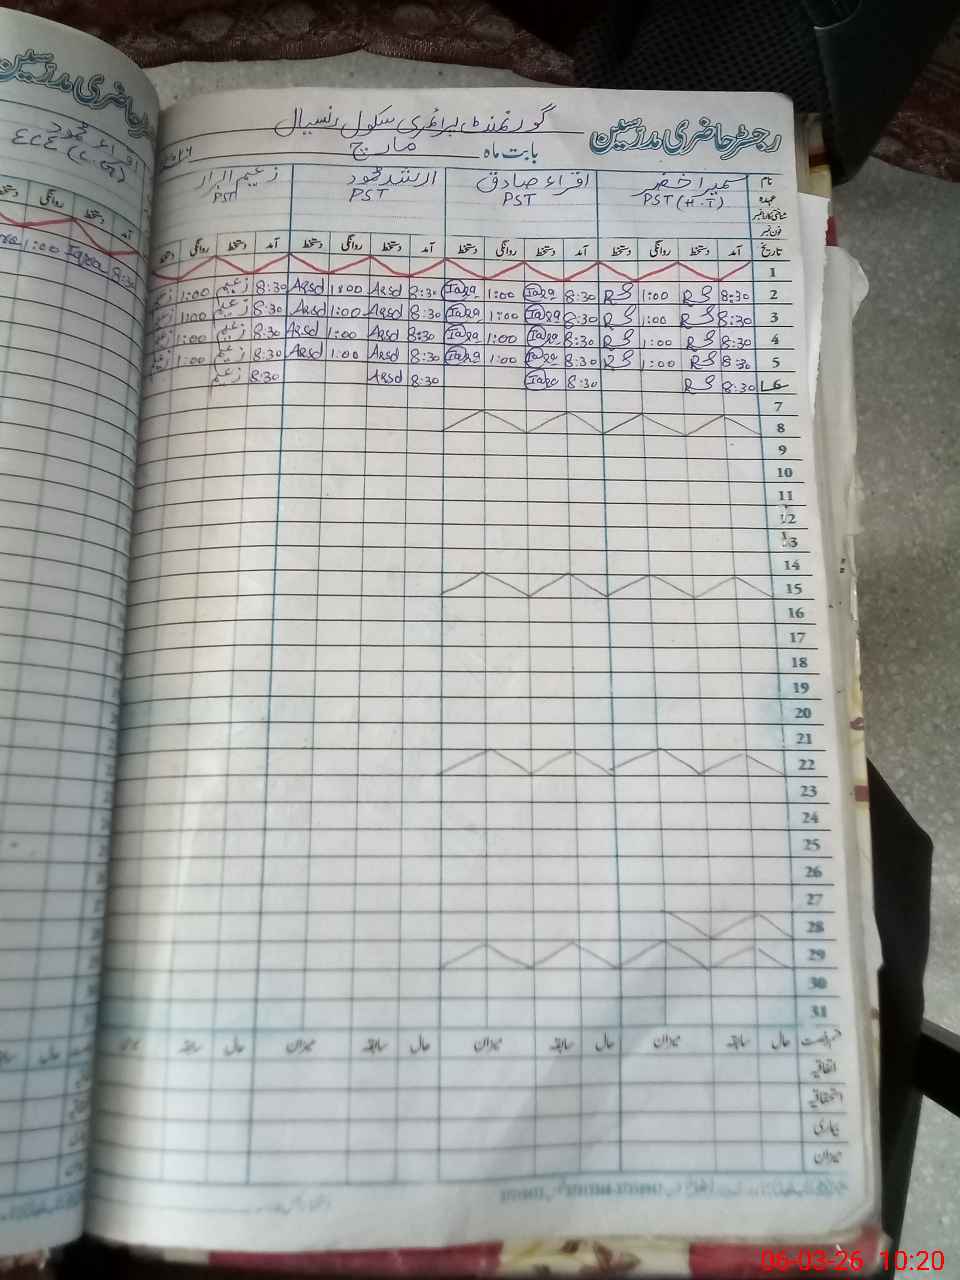 رجسٹر حاضری مدرسین گورنمنٹ پرائمری سکول رنسیال
بابت ماہ مارچ ۲۰۲۶
نام سمیرا خضر اقراء صادق ارشد محمود زعیم
عہدہ PST (H.T) PST PST PST
فون نمبر
تاریخ آمد دستخط روانگی دستخط آمد دستخط روانگی دستخط آمد دستخط روانگی دستخط آمد دستخط روانگی دستخط
1
2 8:30 RS 1:00 RS 8:30 Iqra 1:00 Iqra 8:30 Arsd 1:00 Arsd 8:30 زعیم 1:00
3 8:30 RS 1:00 RS 8:30 Iqra 1:00 Iqra 8:30 Arsd 1:00 Arsd 8:30 زعیم 1:00
4 8:30 RS 1:00 RS 8:30 Iqra 1:00 Iqra 8:30 Arsd 1:00 Arsd 8:30 زعیم 1:00
5 8:30 RS 1:00 RS 8:30 Iqra 1:00 Iqra 8:30 Arsd 1:00 Arsd 8:30 زعیم 1:00
6 8:30 RS 8:30 Iqra 8:30 Arsd 8:30 زعیم
7
8
9
10
11
12
13
14
15
16
17
18
19
20
21
22
23
24
25
26
27
28
29
30
31
حال سابقہ میزان حال سابقہ میزان حال سابقہ میزان حال سابقہ
اتفاقیہ
استحقاقیہ
بیماری
میزان
رجسٹر حاضری مدرسین
اقراء محمود
ECE (C.G)
آمد دستخط روانگی دستخط
8:30 Iqra 1:00
حال سابقہ
06-03-26 10:20